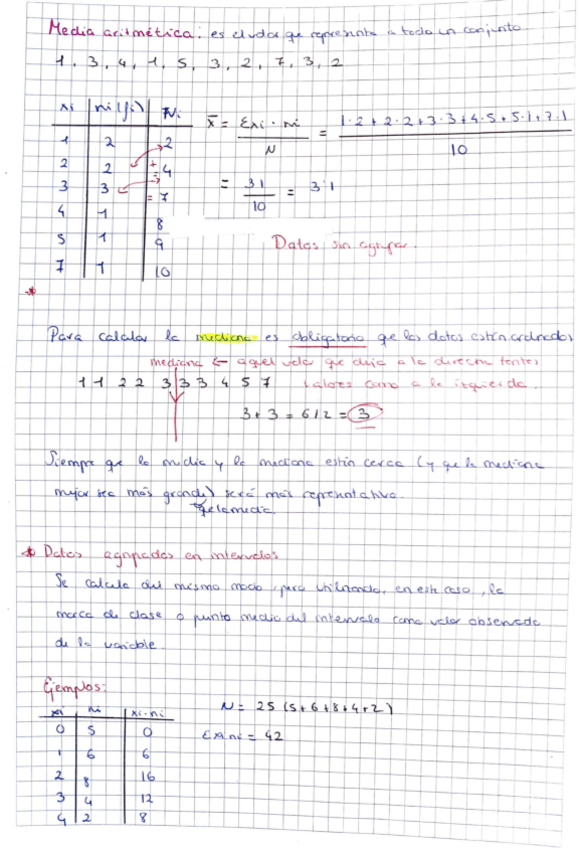 Media aritmética: es el valor que representa a todo un conjunto.
1, 3, 4, 1, 5, 3, 2, 7, 3, 2
xi | ni (fi) | Ni
1 | 2 | 2
2 | 2 | + = 4
3 | 3 | = 7
4 | 1 | 8
5 | 1 | 9
7 | 1 | 10
x̄ = Σxi · ni / N = 1·2 + 2·2 + 3·3 + 4·5 + 5·1 + 7·1 / 10
= 31 / 10 = 3'1
Datos sin agrupar.
*
Para calcular la mediana es obligatorio que los datos estén ordenados
mediana ← aquel valor que deja a la derecha tantos
1 1 2 2 3 3 3 4 5 7 valores como a la izquierda
3 + 3 = 6/2 = 3
Siempre que la media y la mediana estén cerca (y que la mediana
mejor sea más grande) será más representativa.
que la media
* Datos agrupados en intervalos
Se calcula del mismo modo, pero utilizando, en este caso, la
marca de clase o punto medio del intervalo como valor observado
de la variable.
Ejemplos:
xi | ni | xi·ni
0 | 5 | 0
1 | 6 | 6
2 | 8 | 16
3 | 4 | 12
4 | 2 | 8
N = 25 (5+6+8+4+2)
Σxi ni = 42